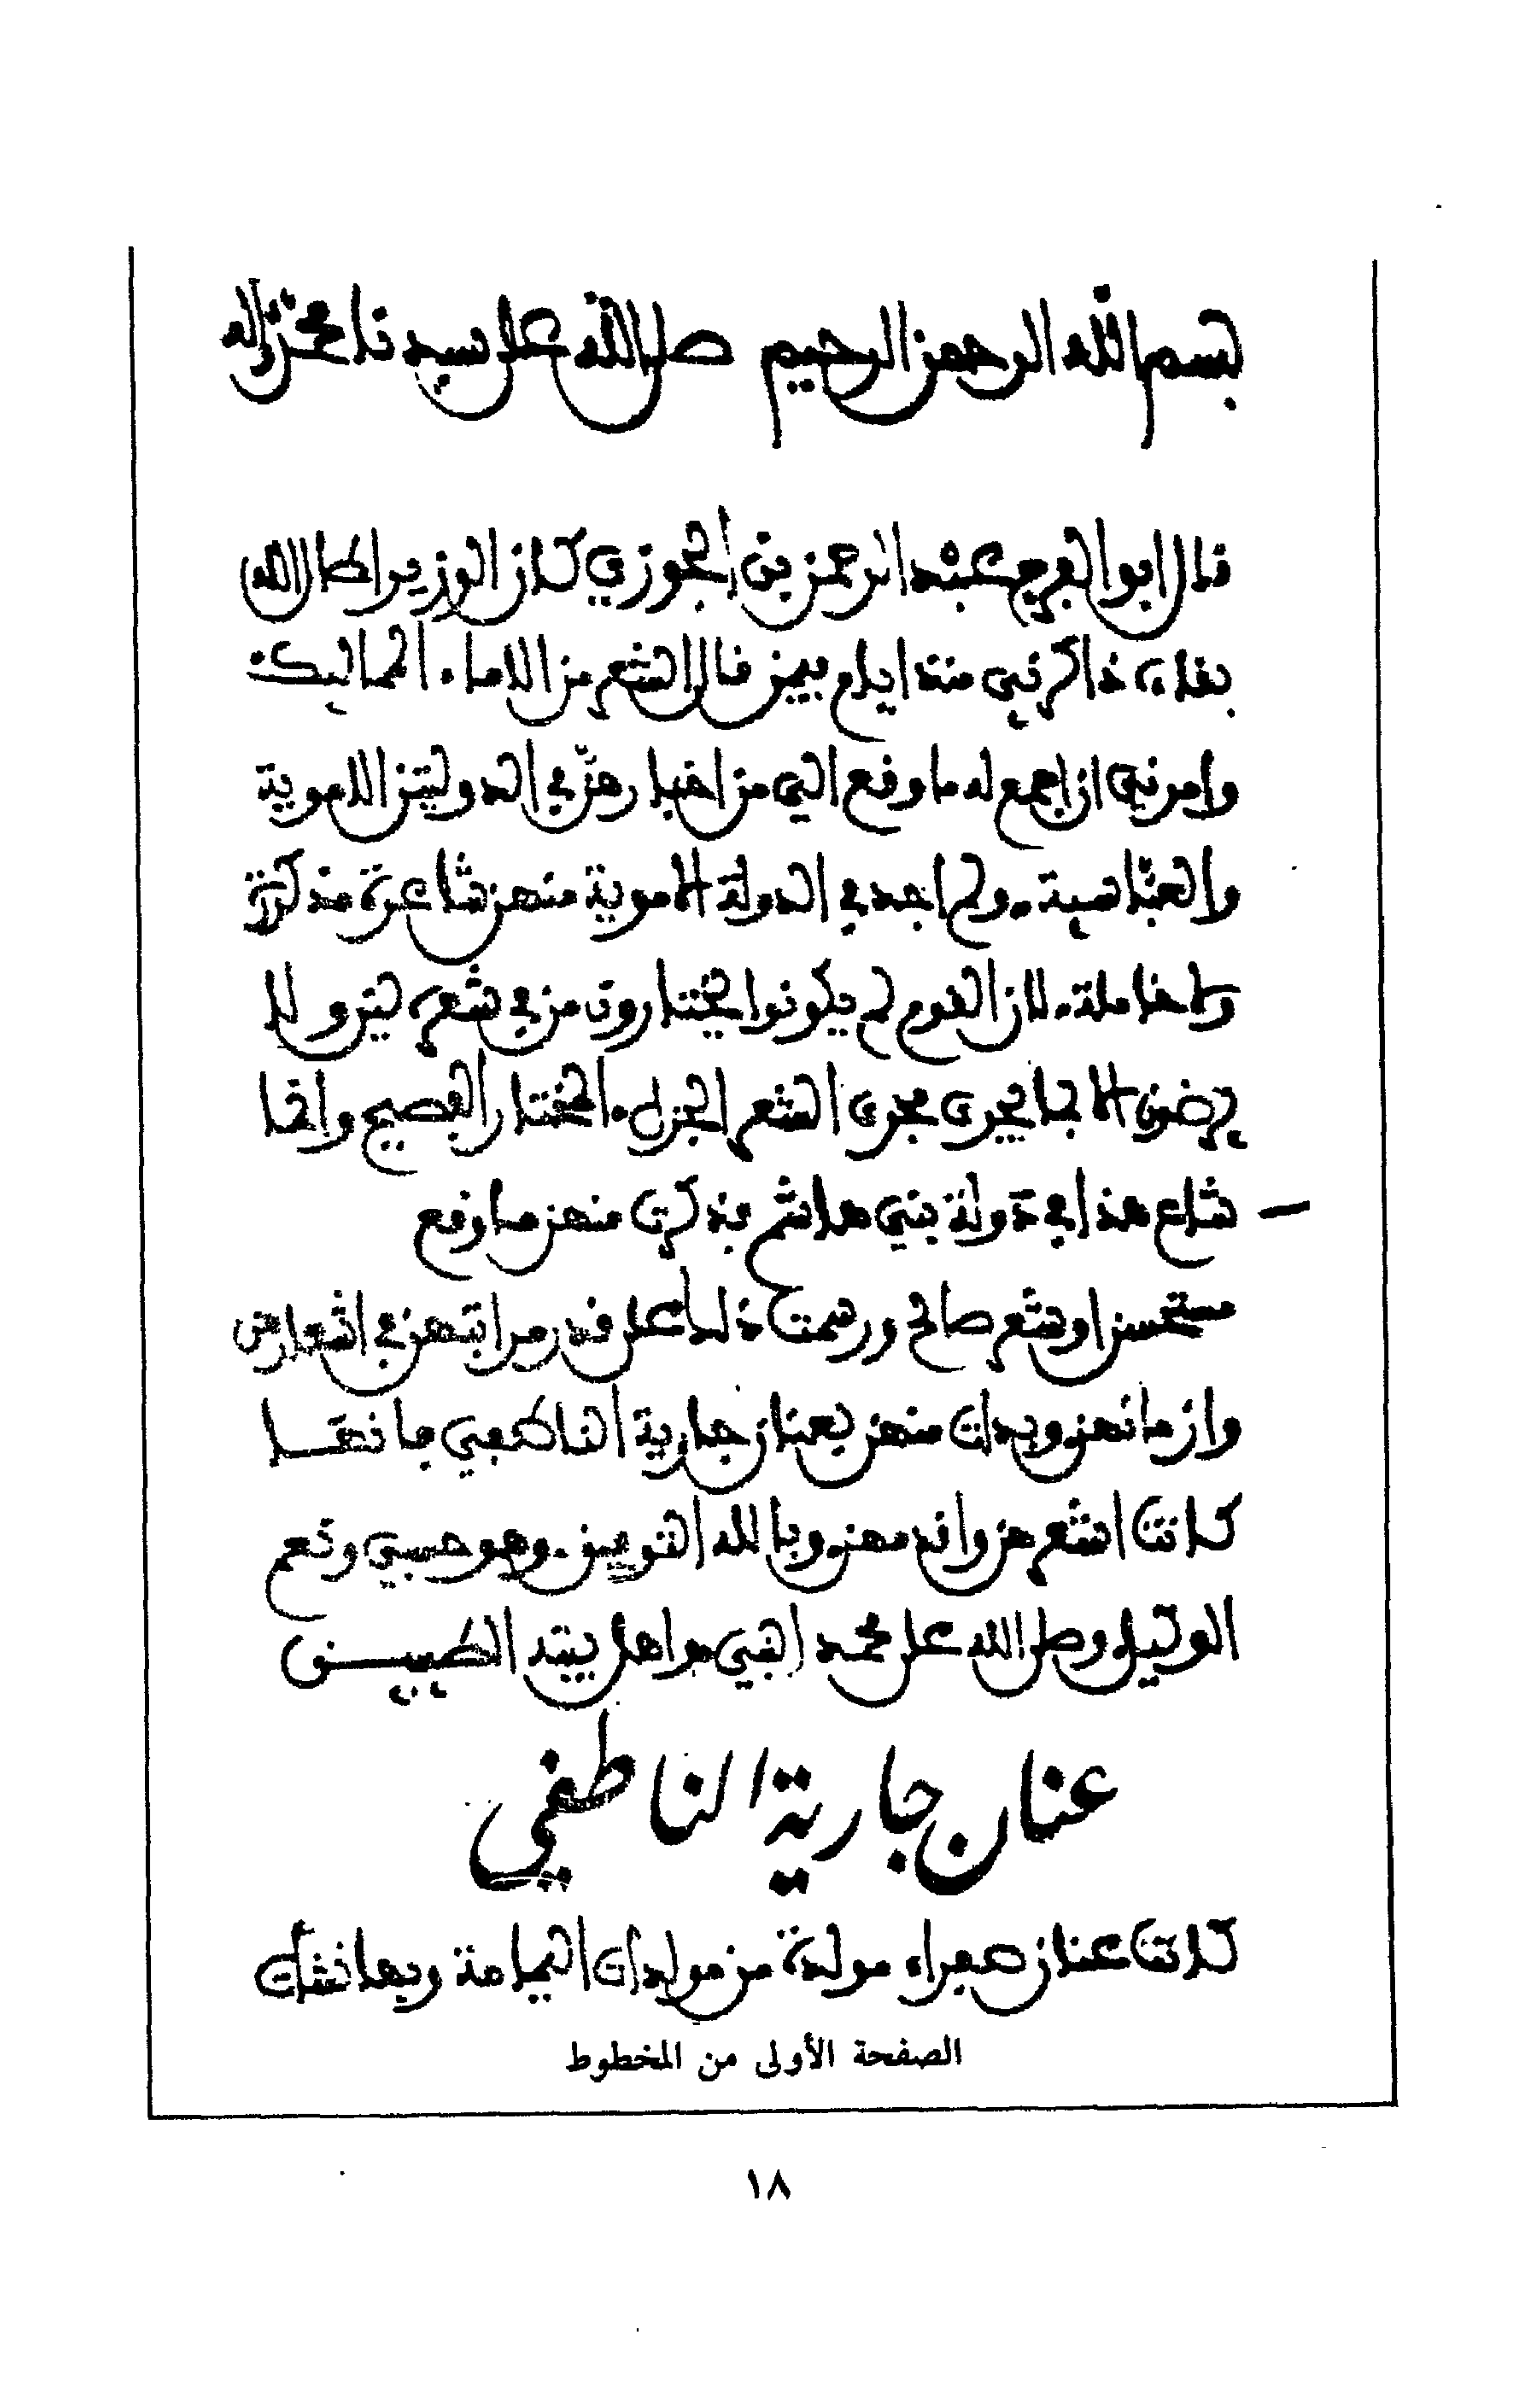 بسم الله الرحمن الرحيم صلى الله على سيدنا محمد وآله
قال ابو الفرج عبد الرحمن بن الجوزي كان الوزير اطال الله
بقاءه ذاكرني منذ ايام بيمن قال الشعر من الاماء المماليك
وامرني ان اجمع له ما وقع الي من اخبارهن في الدولتين الاموية
والعباسية ولم اجد في الدولة الاموية منهن شاعرة مذكورة
ولا خاملة لان القوم لم يكونوا يختارون من في شعره لين ولا
يرضون الا بما يجري مجرى الشعر الجزل المختار الفصيح وانما
شاع هذا في دولة بني هاشم فذكرت منهن ما وقع
مستحسن او شعر صالح ورسمت ذلك على قدر مراتبهن في اشعارهن
وازمانهن وبدات منهن بعنان جارية الناطفي فانها
كانت اشعرهن واقدمهن وبالله التوفيق وهو حسبي ونعم
الوكيل وصلى الله على محمد النبي واهل بيته الطيبين
عنان جارية الناطفي
كانت عنان صفراء مولدة من مولدات اليمامة وبها نشأت
الصفحة الأولى من المخطوط
١٨